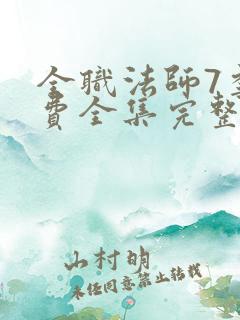 全職法師7
費全集完整
山村明
未经同意禁止转载